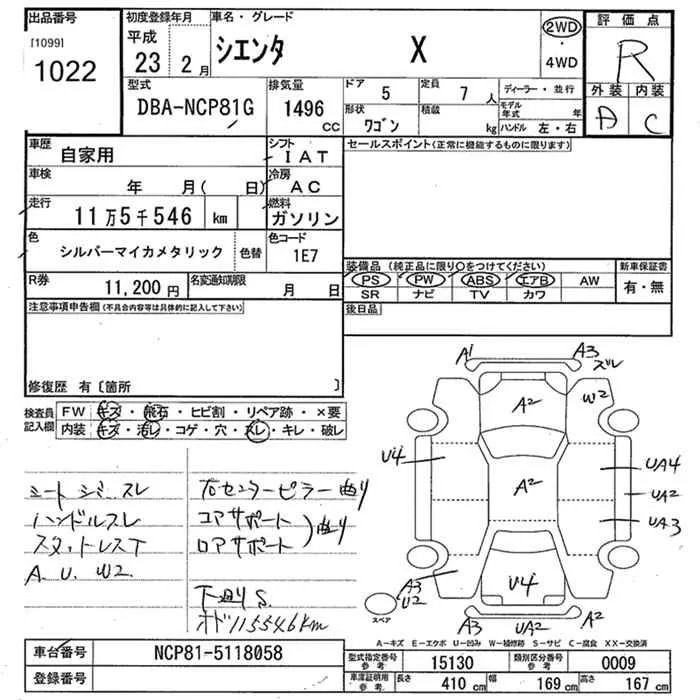 出品番号
[1099]
1022
初度登録年月
平成
23 2月
車名・グレード
シエンタ X
2WD
・
4WD
評価点
R
外装 内装
A C
型式
DBA-NCP81G
排気量
1496
CC
ドア 5
定員 7 人
形状 ワゴン
積載 kg
ディーラー・並行
モデル年式 年
ハンドル 左・右
車歴 自家用
シフト IAT
車検 年 月( 日)
冷房 AC
走行 11万5千546 km
燃料 ガソリン
色 シルバーマイカメタリック 色替
色コード 1E7
R券 11,200円
名変通知期限 月 日
セールスポイント(正常に機能するものに限ります)
装備品 (純正品に限り○をつけてください)
PS PW ABS エアB AW
SR ナビ TV カワ
新車保証書
有・無
後日品
注意事項申告欄(不具合内容等は具体的に記入して下さい)
修復歴 有〔箇所 〕
検査員記入欄
FW キズ・飛石・ヒビ割・リペア跡・×要
内装 キズ・汚レ・コゲ・穴・スレ・キレ・破レ
シートシミ、スレ
ハンドルスレ
スタットレスT
A. U. W2
右センターピラー曲り
コアサポート
ロアサポート
曲り
下廻りS
オド115546km
A1
A3
ズレ
A2
W2
U4
A2
UA4
UA2
UA3
A3
U2
U4
スペア
A3
UA2
A2
A-キズ E-エクボ U-凹み W-補修跡 S-サビ C-腐食 XX-交換済
車台番号 NCP81-5118058
登録番号
型式指定番号参考 15130
類別区分番号参考 0009
車庫証明用参考 長さ 410 cm 幅 169 cm 高さ 167 cm